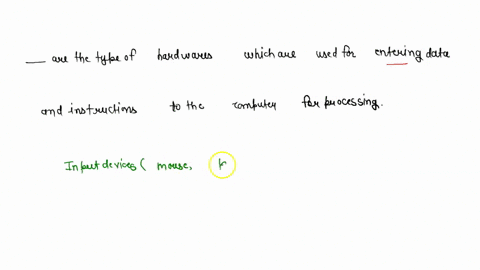 ___ are the type of hardwares which are used for entering data
and instructions to the computer for processing.
Input devices ( mouse, k